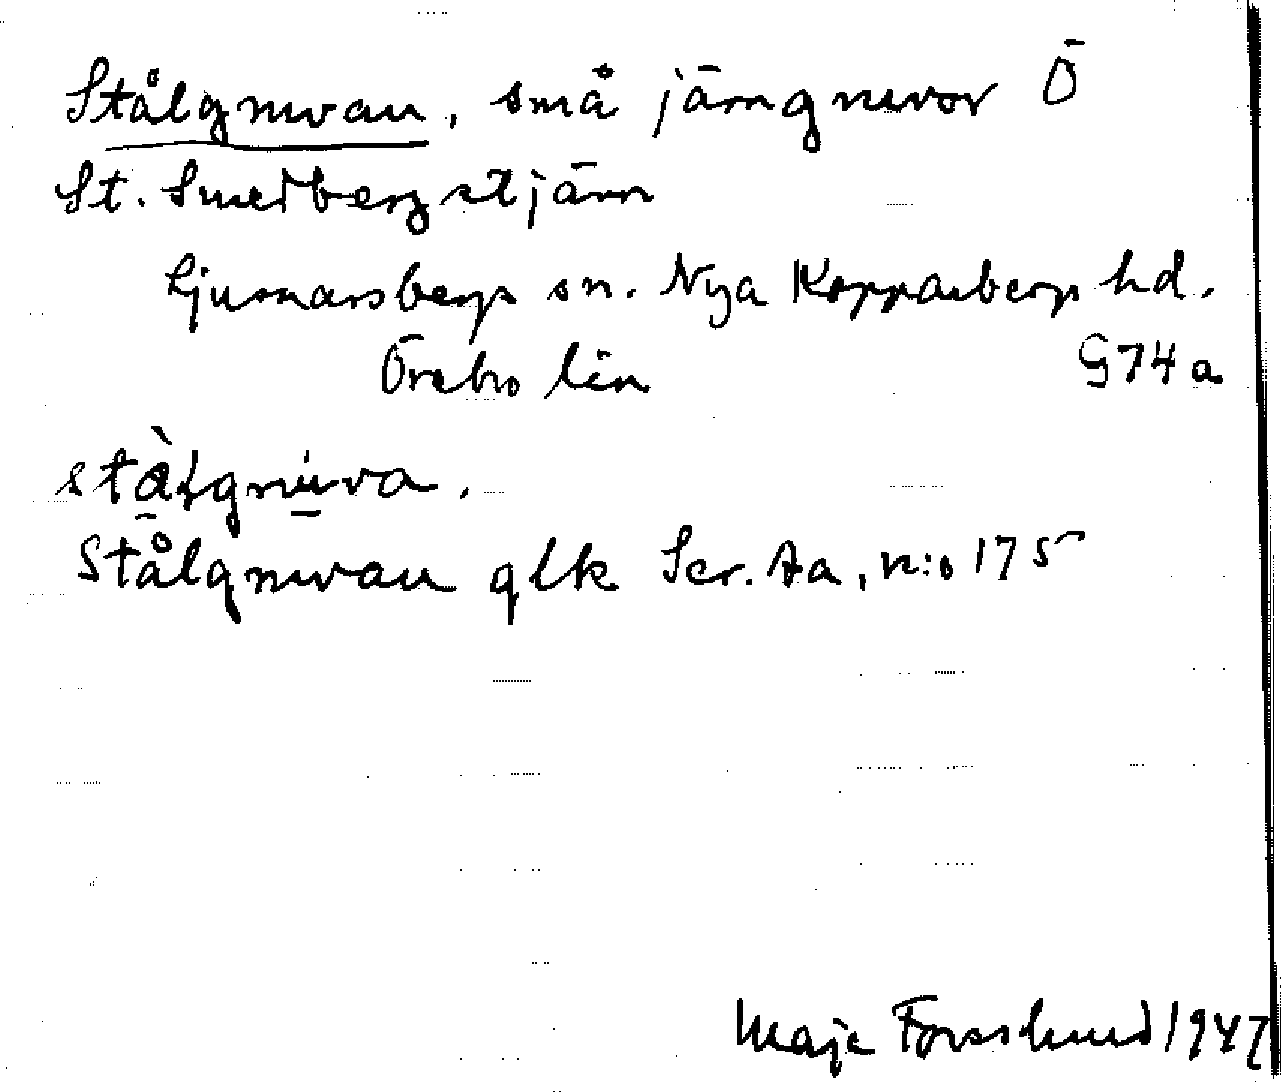 Stålgruvan, små järngruvor Ö
St. Smedbergstjärn
Ljusnarsbergs sn. Nya Kopparbergs hd.
Örebro län G74a
stàlgrùva.
Stålgruvan glk Ser. Aa, n:o 175
Maja Forsslund 1947